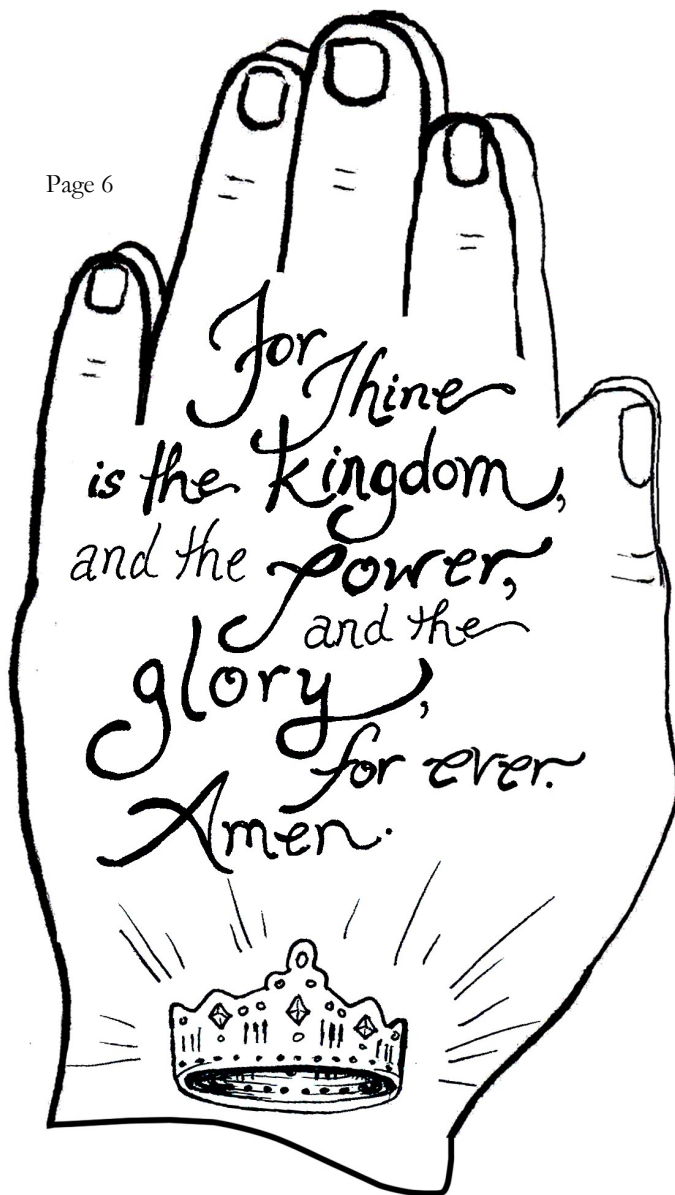 Page 6
For
Thine
is the kingdom,
and the power,
and the
glory,
for ever.
Amen.